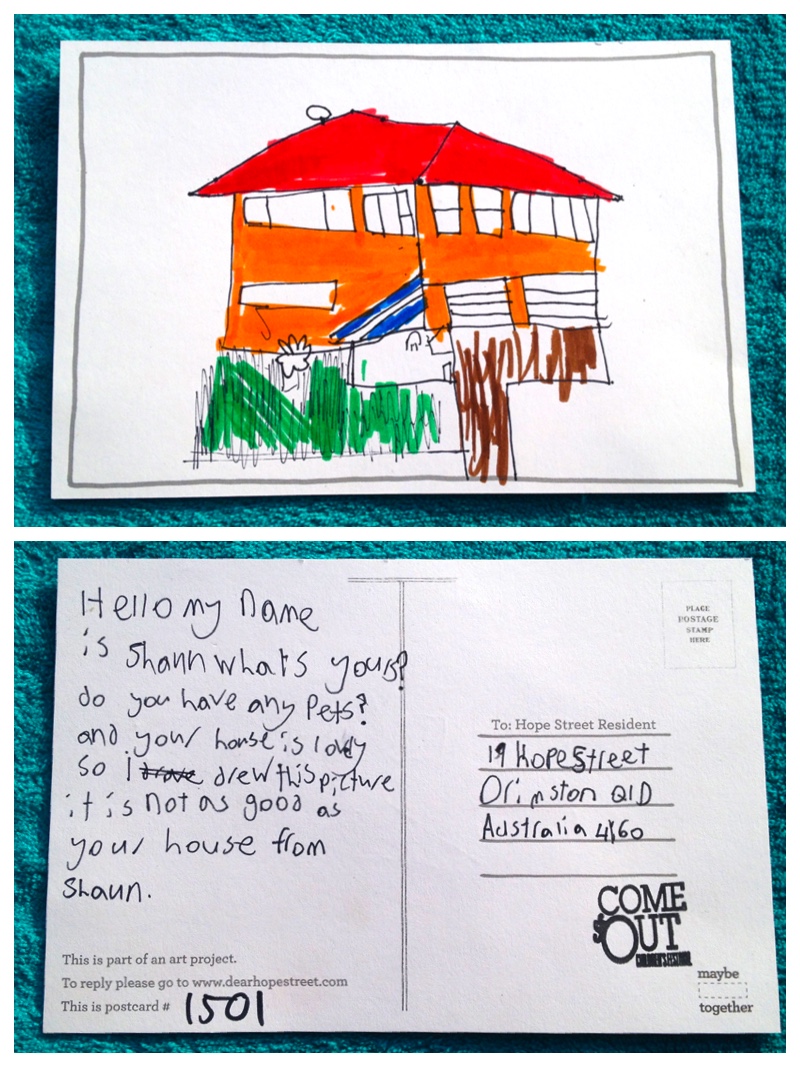 Hello my name
is Shaun what's yours?
do you have any Pets?
and your house is lovly
so I drave drew this picture
it is not as good as
your house from
Shaun.
This is part of an art project.
To reply please go to www.dearhopestreet.com
This is postcard # 1501
PLACE
POSTAGE
STAMP
HERE
To: Hope Street Resident
19 Hope Street
Ormston QLD
Australia 4160
COME
OUT
CHILDREN'S FESTIVAL
maybe
together